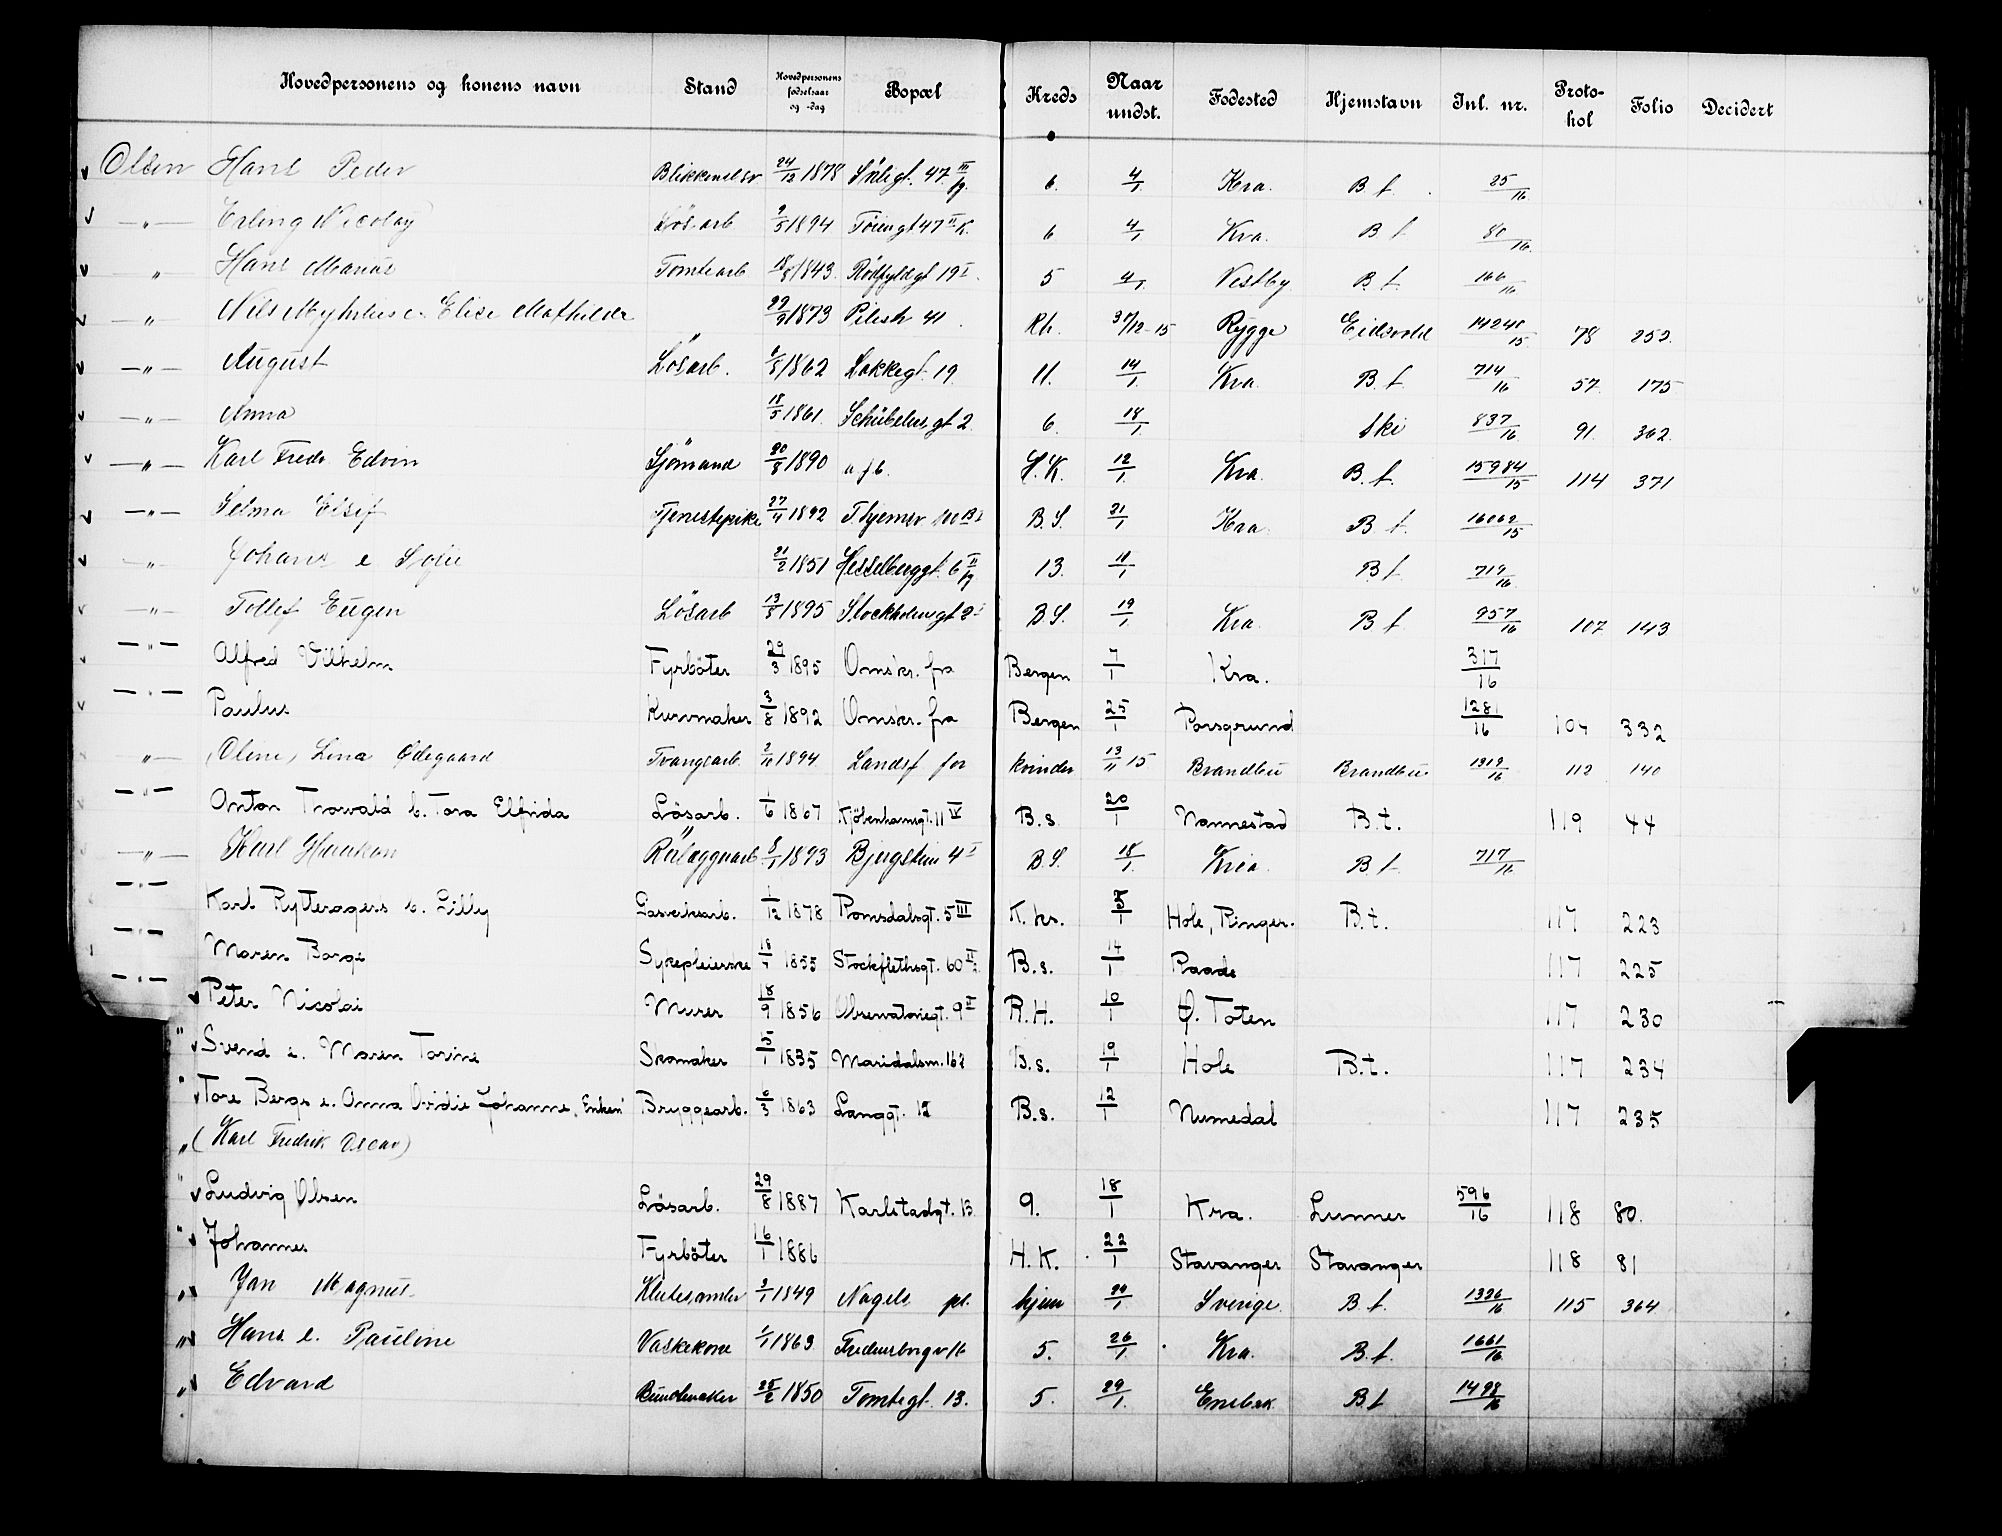 Hovedpersonens og konens navn Stand Hovedpersonens fødselsaar og -dag Bopæl Kreds Naar undst. Fødested Hjemstavn Inl. nr. Proto-kol Folio Decidert
Olsen Hans Peder 24/12 1878 47 III 6. 4/1 Kra. B t. 25/16
—"— Erling Nicolay Løsarb 9/5 1894 Tøiengt 47 II K. 6 4/1 Kra. B t 80/16
" Hans Marius Tomtearb 18/8 1843. Rødfyldgt 19 I. 5 4/1. Vestby B t. 166/16
—"— Elise Mathilde " 29/9 1873 Pilestr 41. Rh. 31/12-15 Rygge Eidsvold 14240/15 78 252.
—"— August Løsarb. 1862 Lakkegt. 19. 11. 14/1. Kra. B. t 714/16 57. 175
—"— Anna 18/5 1861. Schübelersgt 2 6. 18/1. Ski 837/16 91. 362.
—"— Karl Fredr. Edvin Sjømand 20/8 1890 u. f b. H. K. 12/1. Kra. B. t. 15984/15 114 371
—"— Selma Elsif Tjenestepike 27/4 1892 B. S. 21/1 Kra. B t. 16062/15
—"— Johans e Sofie 21/2 1851 Hesselberggt. 6 II 13. 18/1 B t. 719/16
—"— Tollef Eugen Løsarb 13/8 1895 Stockholmsgt 2 I B S. 19/1 Kra B t. 957/16 107 143
—"— Alfred Vilhelm Fyrbøter 29/3 1895 Omskr. fra Bergen 7/1 Kra. 317/16
—"— Paulus Kurvmaker 3/8 1892 Omskr. fra Bergen 25/1 Porsgrund 1281/16 104 332
—"— (Oline) Lina Ødegaard Tvangsarb. 2/10 1894 Landsf for kvinder 13/11 15 Brandbu Brandbu 1319/16 112 140
—"— Anton Trowald h. Tora Elfrida Løsarb. 1/6 1867 Kjøbenhavnsgt. 11 IV B. s. 20/1 Nannestad B. t. 119 44
—"— Karl Haakon Rørlæggerarb 1893 Bjergstien 4 I B. S. 18/1. Kria. B t. 717/16
—"— Karl Rytteragers h. Lilly Gasverksarb. 1/12 1878 Romsdalsgt. 5 III K. ks. 5/1 Hole, Ringer. B. t. 117 223
—"— Maren Borge Sykepleierske 18/1 1855 Stockflethsgt. 60 II B. s. 14/1 Raade 117 225
—"— Peter Nicolai Murer 18/9 1856 Observatoriegt. 9 II R. H. 10/1 Ø. Toten 117 230
" Svend e. Maren Torine Skomaker 5/1 1835 Maridalsv. 162 B. s. 19/1 Hole B. t. 117 234
" Tore Bergs e. Anna Ovidie Johanne, Enken Bryggearb. 6/3 1863 Langgt. 12 B. s. 12/1 Numedal 117 235
" (Karl Fredrik Oscar)
" Ludvig Olsen Løsarb. 29/8 1887 Karlstadgt. 13 9. 18/1 Kra. Lunner 596/16 118 80.
" Johannes Fyrbøter 16/1 1886 H. K. 22/1 Stavanger Stavanger 118 81
" Jan Magnus Klutesamler 3/1 1849 Nagels pl. hjem 20/1 Sverige. B. t. 1326/16 115 364
" Hans e. Pauline Vaskekone 1/1 1863 Fredensborgv 16 5. 26/1. Kra. B. t. 1661/16
" Edvard Buntmaker 25/2 1850 Tomtegt. 13. 5. 29/1. Enebak B. t 1498/16